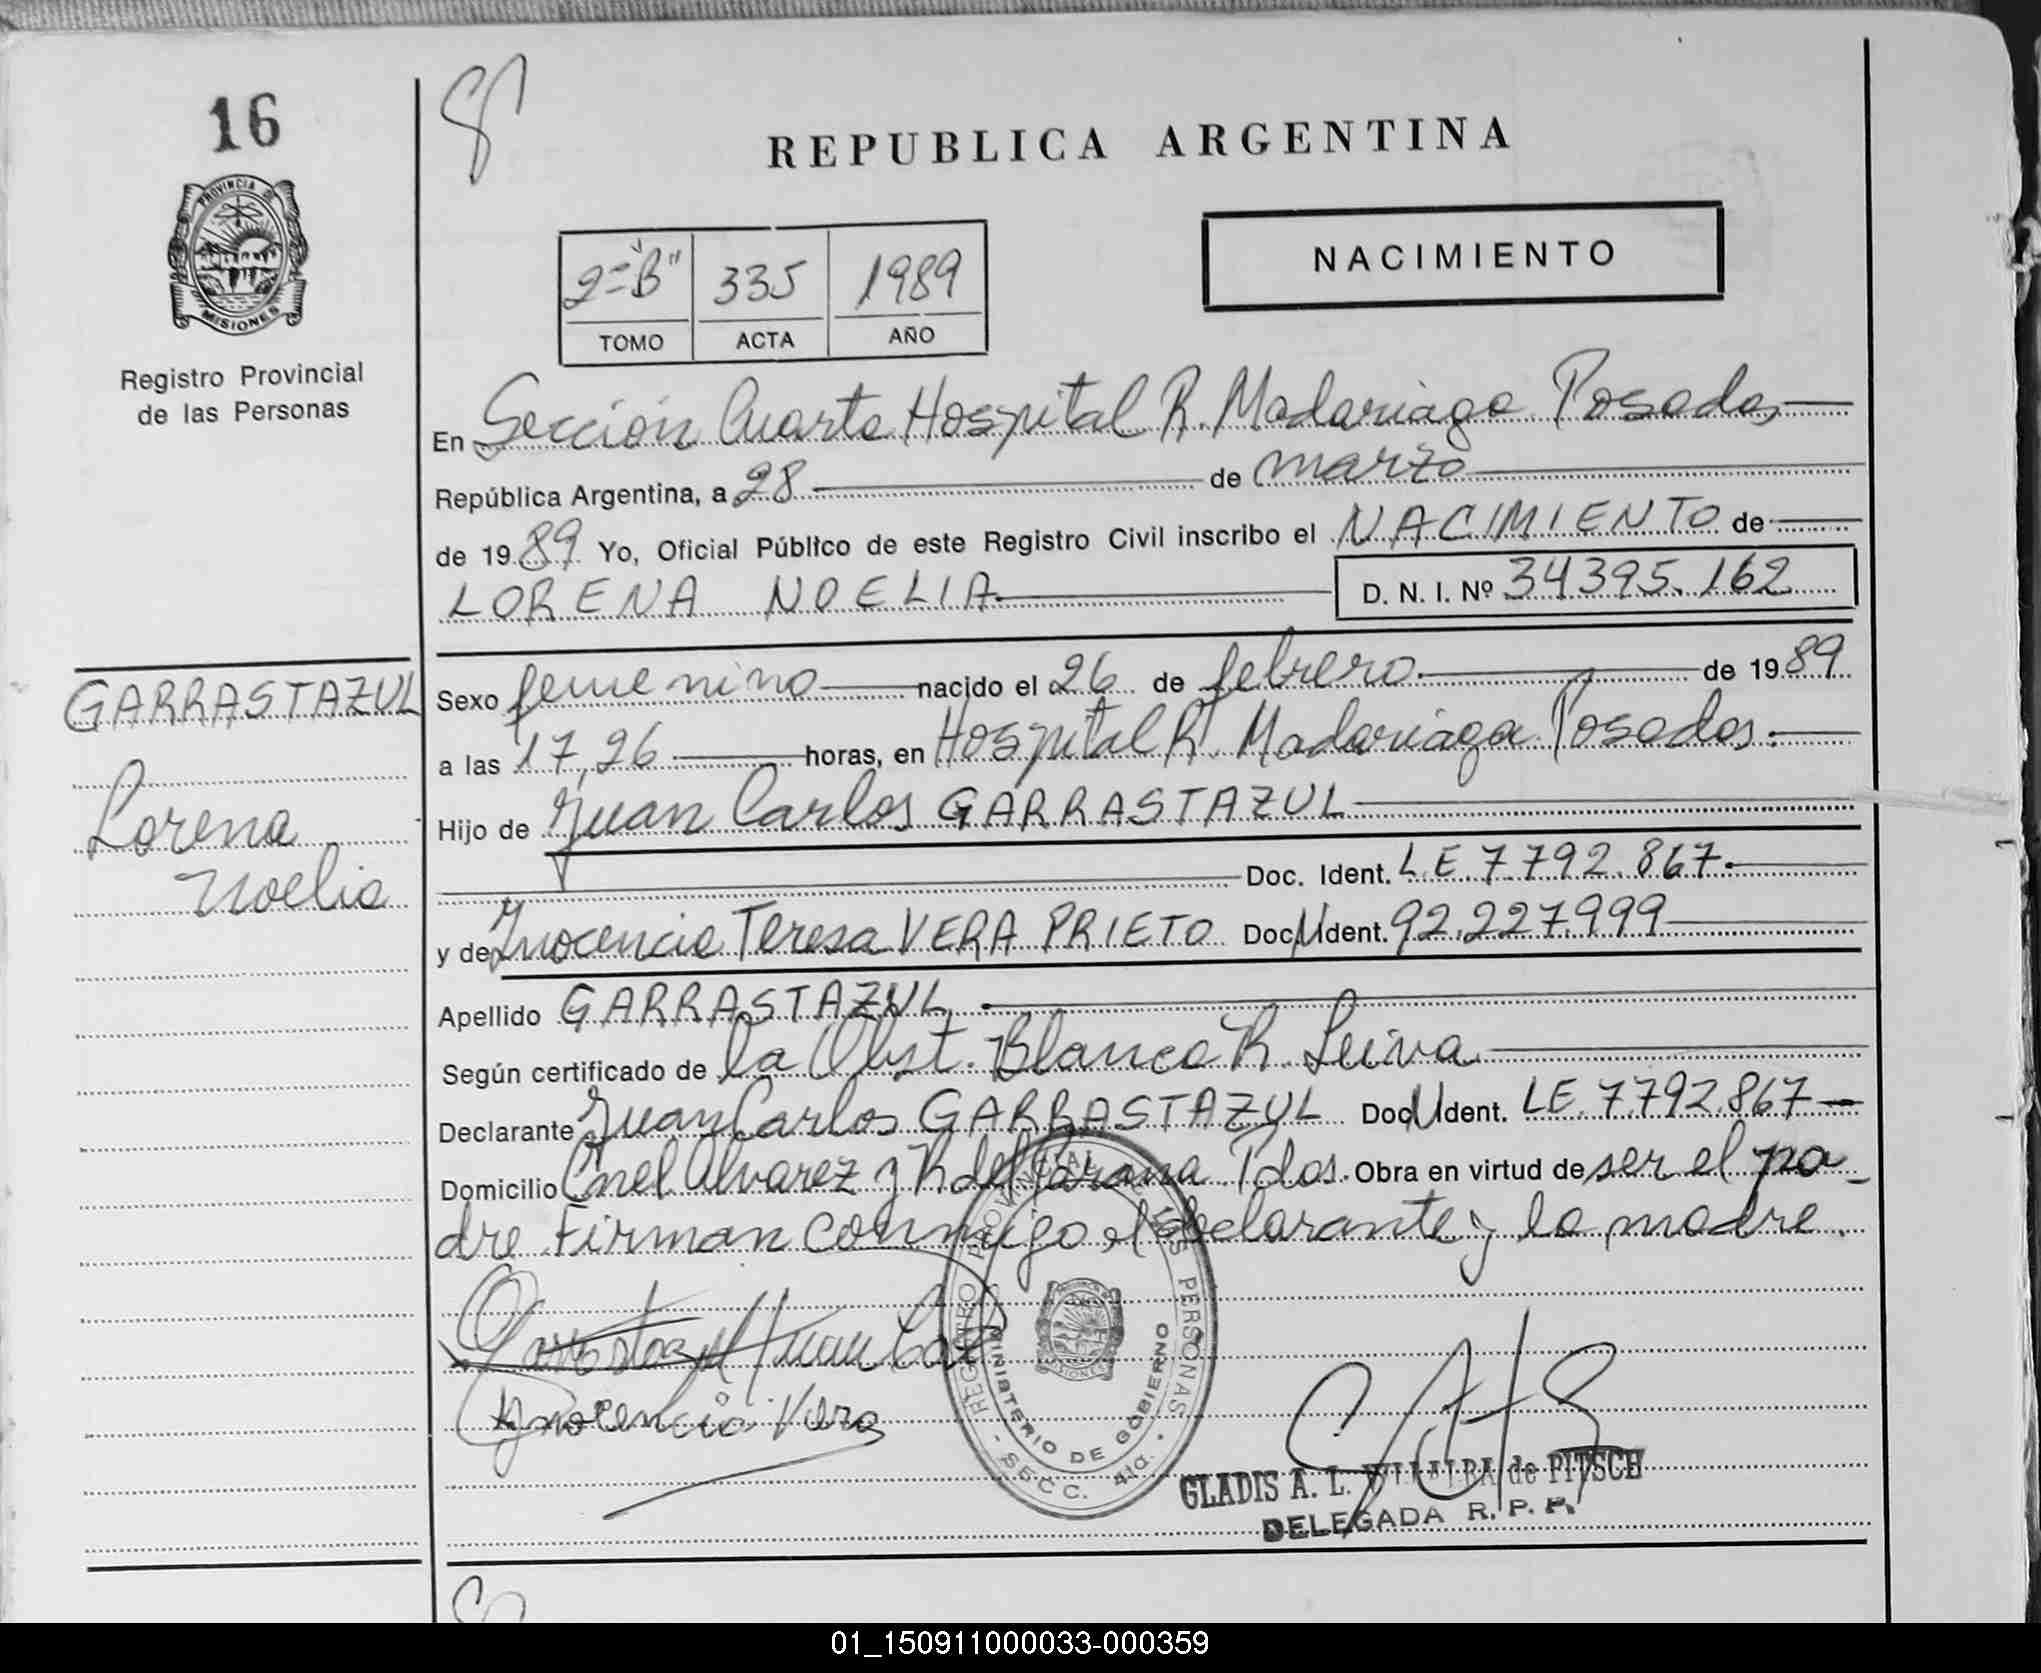 16
REPUBLICA ARGENTINA
PROVINCIA DE
MISIONES
Registro Provincial
de las Personas
2="B" 335 1989
TOMO ACTA AÑO
NACIMIENTO
En Sección Cuarta Hospital R. Madariaga Posadas
República Argentina, a 28 de marzo
de 1989 Yo, Oficial Público de este Registro Civil inscribo el NACIMIENTO de
LORENA NOELIA D. N. I. Nº 34395.162
GARRASTAZUL
Lorena
Noelia
Sexo femenino nacido el 26 de febrero de 1989
a las 17,26 horas, en Hospital R. Madariaga Posadas.
Hijo de Juan Carlos GARRASTAZUL
Doc. Ident. L.E. 7.792.867.
y de Inocencia Teresa VERA PRIETO Doc. Ident. 92.227.999
Apellido GARRASTAZUL
Según certificado de la Obst. Blanca R. Leiva
Declarante Juan Carlos GARRASTAZUL Doc. Ident. LE 7.792.867
Domicilio Cnel Alvarez y R del Parana Pdos. Obra en virtud de ser el pa-
dre. Firman conmigo el declarante y la madre.
Inocencia Vera
REGISTRO PROVINCIAL DE LAS PERSONAS
MINISTERIO DE GOBIERNO
- SECC. 4ta. -
MISIONES
GLADIS A. L. VILLALBA de PITSCH
DELEGADA R. P. P.
01_150911000033-000359